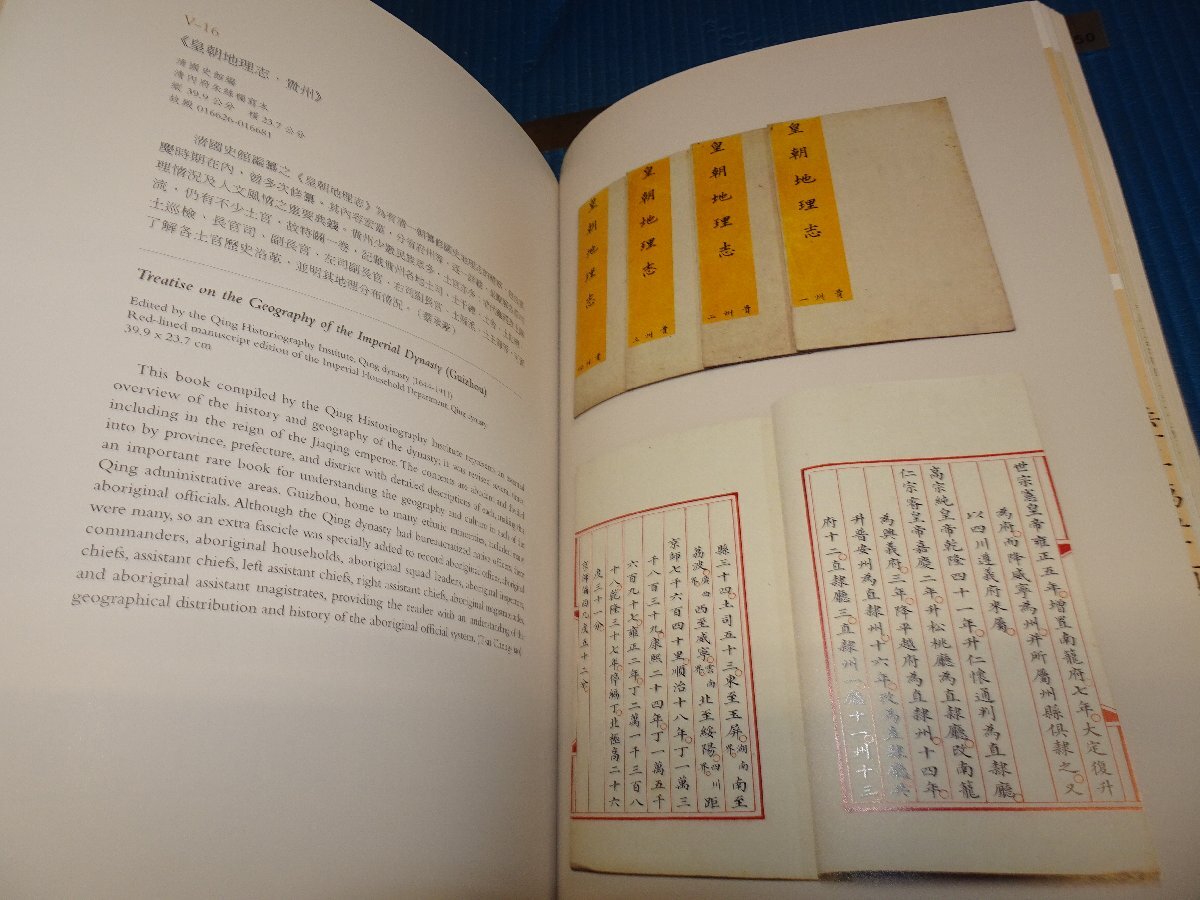 V-16
《皇朝地理志・貴州》
清國史館編
清內府朱絲欄寫本
縱 39.9 公分 橫 23.7 公分
故殿 016626-016681
清國史館編纂之《皇朝地理志》為有清一朝
慶時期在內，曾多次修纂，其內容宏富，分省府州
理情況及人文風情之重要典籍。貴州少數民族眾多，土官亦多
流，仍有不少土官，故特闢一卷，記載貴州各地土司、土千總
土巡檢、長官司、副長官、左司副長官、右司副長官
了解各土官歷史沿革，並明其地理分布情況。
Treatise on the Geography of the Imperial Dynasty (Guizhou)
Edited by the Qing Historiography Institute, Qing dynasty (1644-1911)
Red-lined manuscript edition of the Imperial Household Department, Qing dynasty
39.9 x 23.7 cm
This book compiled by the Qing Historiography Institute represents an essential
overview of the history and geography of the dynasty; it was revised several times,
including in the reign of the Jiaqing emperor. The contents are abundant and divided
into by province, prefecture, and district with detailed descriptions of each, making this
an important rare book for understanding the geography and culture in each of the
Qing administrative areas. Guizhou, home to many ethnic minorities, includes many
aboriginal officials. Although the Qing dynasty had bureaucratized native offices, there
were many, so an extra fascicle was specially added to record aboriginal offices, aboriginal
commanders, aboriginal households, aboriginal squad leaders, aboriginal inspectors,
chiefs, assistant chiefs, left assistant chiefs, right assistant chiefs, aboriginal magistrates,
and aboriginal assistant magistrates, providing the reader with an understanding of the
geographical distribution and history of the aboriginal official system.
皇朝地理志
貴州一
皇朝地理志
貴州二
皇朝地理志
貴州三
皇朝地理志
貴州四
世宗憲皇帝雍正五年增置南籠府七年大定復升
為府而降威寧為州并所屬州縣俱隸之又
以四川遵義府來屬
高宗純皇帝乾隆四十一年升仁懷通判為直隸廳
仁宗睿皇帝嘉慶二年升松桃廳為直隸廳改南籠
為興義府三年降平越府為直隸州十四年
升普安州為直隸州十六年改為直隸廳共
府十二直隸廳三直隸州一廳十一州十三
縣三十四土司五十三東至玉屏湖南界南至
荔波廣西界西至威寧雲南界北至綏陽四川界距
京師七千六百四十里順治十八年丁一萬三
千八百三十九康熙二十四年丁一萬五千
六百九十七雍正二年丁二萬一千三百八
十八乾隆三十七年停編丁北極高二十六
度三十一分
京師偏西九度五十二分